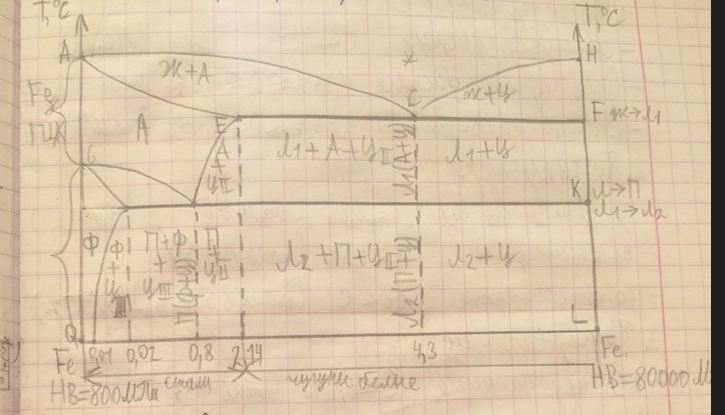 T,°C
T,°C
A
H
ж+А
ж
Feγ
ГЦК
C
ж+Ц
А
E
F ж→Л1
G
А
+
ЦII
Л1+А+ЦII
Л1(А+Ц)
Л1+Ц
K
А→П
Л1→Л2
Ф
Ф
+
Ц
III
П+Ф
+
ЦIII
П(Ф+Ц)
П
+
ЦII
Л2+П+ЦII
Л2(П+Ц)
Л2+Ц
Q
L
Fe
0,01
0,02
0,8
2,14
4,3
Fe
HB=800МПа
стали
чугуны белые
HB=80000М